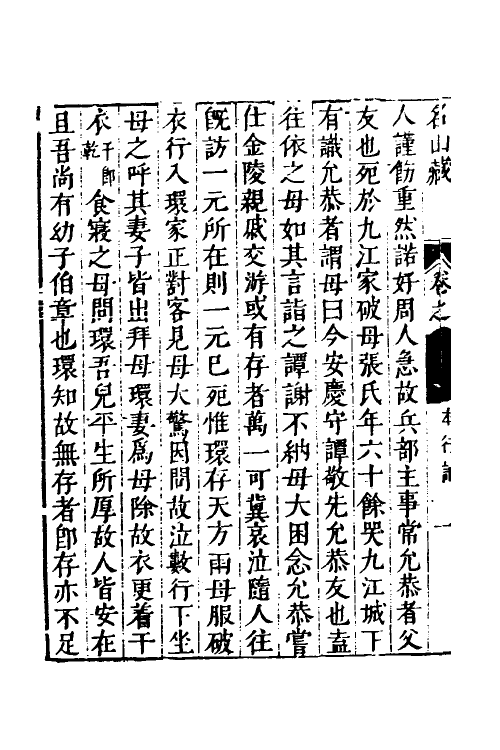 名山藏 卷之 本行記 一
人謹飭重然諾好周人急故兵部主事常允恭者父
友也死於九江家破母張氏年六十餘哭九江城下
有識允恭者謂母曰今安慶守譚敬先允恭友也盍
往依之母如其言詣之譚謝不納母大困念允恭嘗
仕金陵親戚交游或有存者萬一可冀哀泣隨人往
既訪一元所在則一元已死惟環存天方雨母服破
衣行入環家正對客見母大驚因問故泣數行下坐
母之呼其妻子皆出拜母環妻爲母除故衣更着干
衣干卽乾食寢之母問環吾兒平生所厚故人皆安在
且吾尚有幼子伯章也環知故無存者卽存亦不足